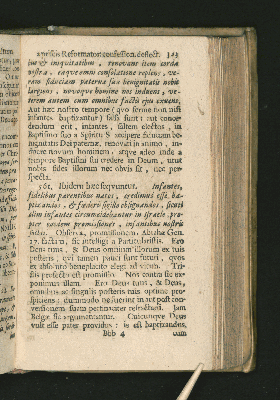 a priscis Reformator. confession. deflect. 323
bus & iniquitatibus, renovans item corda
nostra, eaque omni consolatione replens, ve-
ram fiduciam paternæ suæ benignitatis nobis
largiens, novoque homine nos induens, ve-
terem autem cum omnibus factis ejus exuens.
Aut hæc nostro tempore (quo ferme non nisi
infantes baptizantur) falsa sunt: aut conce-
dendum erit, infantes, saltem electos, in
Baptismo suo a Spiritu S. accipere fiduciam be-
nignitatis Dei paternæ, renovari in animo, in-
duere novum hominem: atque adeo unde a
tempore Baptismi sui credere in Deum, utut
nobis fides illorum nec obvia sit, nec per-
specta.
561. Ibidem hæc sequuntur. Infantes,
fidelibus parentibus natos, credimus esse ba-
ptizandos, & fœderis signo obsignandos, sicut
olim infantes circumcidebantur in Israele pro-
pter easdem promissiones, infantibus nostris
factas. Observa, promissionem Abrahæ Gen.
17. factam, sic intelligi a Particularistis. Ero
Deus tuus, & Deus omnium illorum ex tuis
posteris, qui tamen pauci sunt futuri, quos
ex absoluto beneplacito elegi ad vitam. Tri-
stis profecto est promissio. Nos contra sic ex-
ponimus illam. Ero Deus tuus, & Deus,
omnibus ac singulis posteris tuis optime pro-
spiciens: dummodo ne fuerint in aut post con-
versionem suam pertinaciter rebelles. Jam
Belgæ sic argumentantur. Cuicunque Deus
vult esse pater providus: is est baptizandus,
Bbb 4 nam